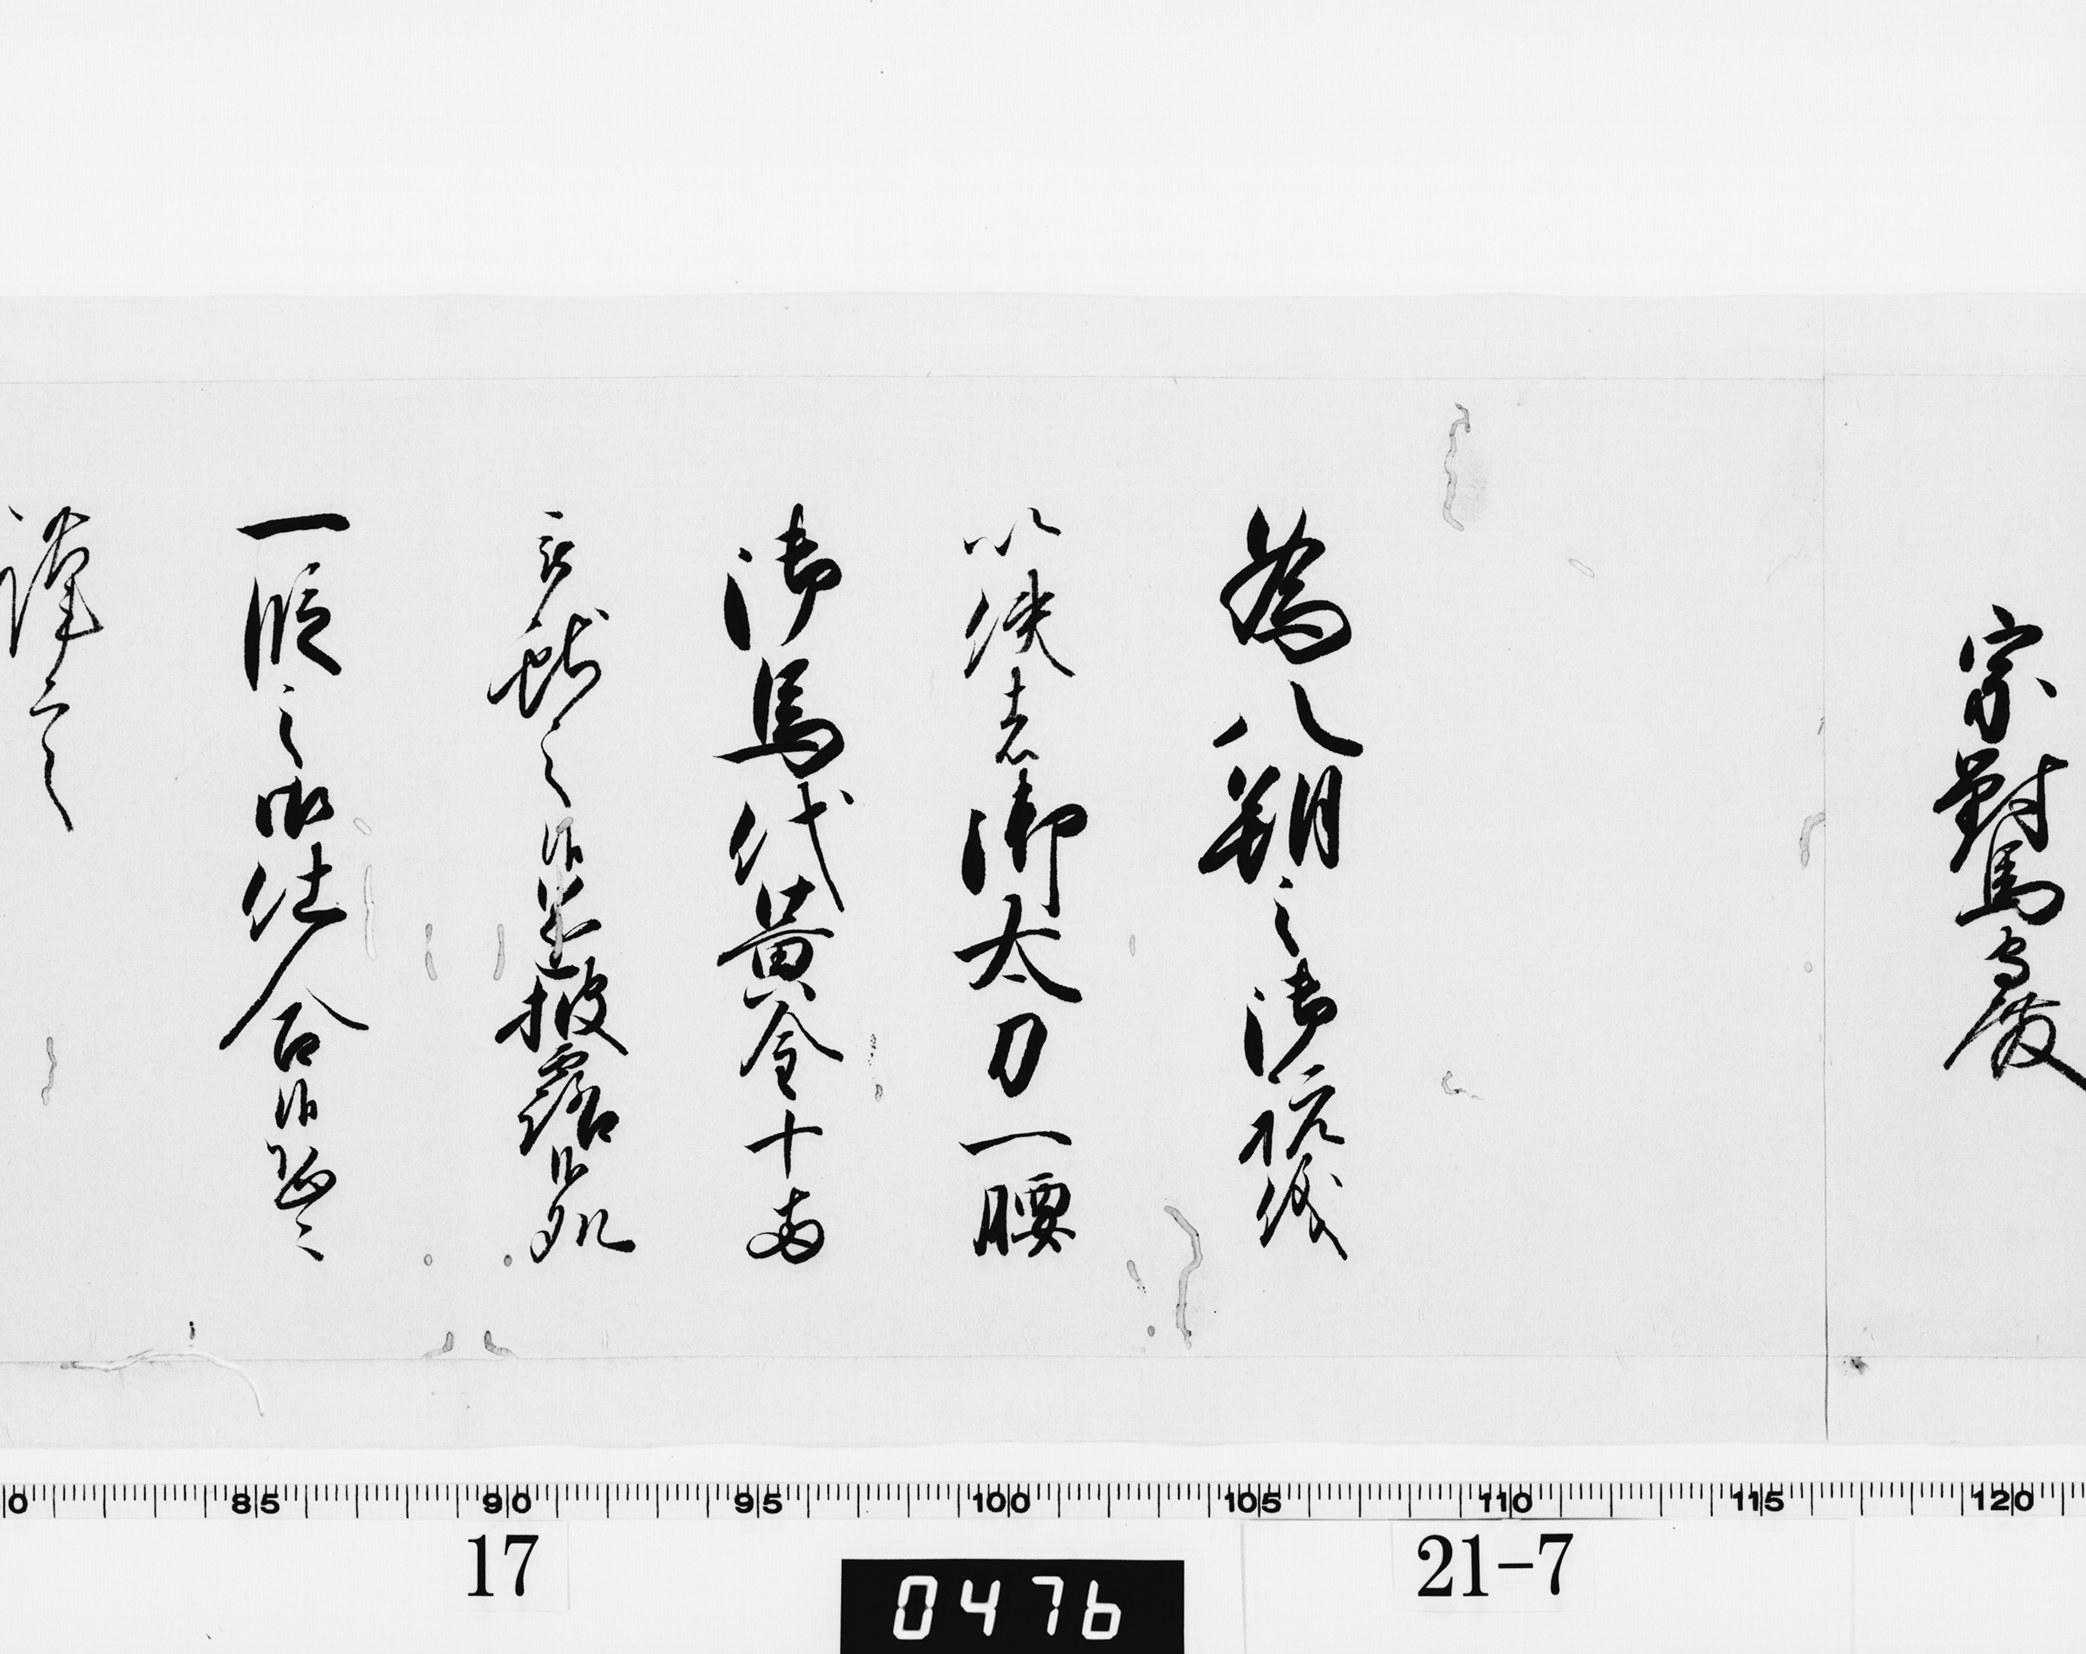 宗對馬守殿
為八朔之御祝儀
以使者御太刀一腰
御馬代黄金十両
被献之候遂披露候処
一段之御仕合候恐々
謹言
0 85 90 95 100 105 110 115 120
17
21-7
0476